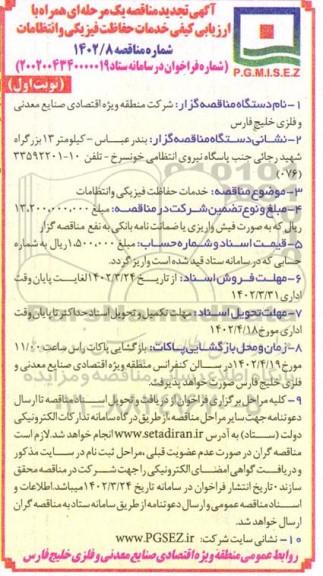 آگهی تجدید مناقصه یک مرحله‌ای همراه با
ارزیابی کیفی خدمات حفاظت فیزیکی و انتظامات
شماره مناقصه ۱۴۰۲/۸
(شماره فراخوان در سامانه ستاد ۲۰۰۲۰۰۴۳۴۰۰۰۰۰۱۹)
P.G.M.I.S.E.Z
(نوبت اول)
۱- نام دستگاه مناقصه گزار: شرکت منطقه ویژه اقتصادی صنایع معدنی
و فلزی خلیج فارس
۲- نشانی دستگاه مناقصه گزار: بندرعباس - کیلومتر ۱۳ بزرگراه
شهید رجائی جنب پاسگاه نیروی انتظامی خونسرخ - تلفن ۱۰-۳۳۵۹۲۲۰۱
(۰۷۶)
۳- موضوع مناقصه: خدمات حفاظت فیزیکی وانتظامات
۴- مبلغ و نوع تضمین شرکت در مناقصه: مبلغ ۱۳,۲۰۰,۰۰۰,۰۰۰
ریال که به صورت فیش واریزی یا ضمانت نامه بانکی به نفع مناقصه گزار
۵- قیمت اسناد و شماره حساب: مبلغ ۱,۵۰۰,۰۰۰ ریال به شماره
حسابی که در سامانه ستاد قید شده است واریز گردد.
۶- مهلت فروش اسناد: از تاریخ ۱۴۰۲/۳/۲۴ لغایت پایان وقت
اداری ۱۴۰۲/۳/۳۱
۷- مهلت تحویل اسناد: مهلت تکمیل و تحویل اسناد حداکثر تا پایان وقت
اداری مورخ ۱۴۰۲/۴/۱۸
۸- زمان و محل بازگشایی پاکات: بازگشایی پاکات راس ساعت ۱۱/۰۰
مورخ ۱۴۰۲/۴/۱۹ در سالن کنفرانس منطقه ویژه اقتصادی صنایع معدنی و
فلزی خلیج فارس صورت خواهد پذیرفت.
۹- کلیه مراحل برگزاری فراخوان از دریافت و تحویل اسناد مناقصه تا ارسال
دعوتنامه جهت سایر مراحل مناقصه از طریق درگاه سامانه تدارکات الکترونیکی
دولت (ستاد) به آدرس www.setadiran.ir انجام خواهد شد. لازم است
مناقصه گران در صورت عدم عضویت قبلی، مراحل ثبت نام در سایت مذکور
و دریافت گواهی امضای الکترونیکی را جهت شرکت در مناقصه محقق
سازند. تاریخ انتشار فراخوان در سامانه تاریخ ۱۴۰۲/۳/۲۴ میباشد. اطلاعات و
اسناد مناقصه عمومی و ارسال دعوتنامه از طریق سامانه ستاد به مناقصه گران
ارسال خواهد شد.
۱۰- نشانی سایت شرکت: www.PGSEZ.ir
روابط عمومی منطقه ویژه اقتصادی صنایع معدنی و فلزی خلیج فارس